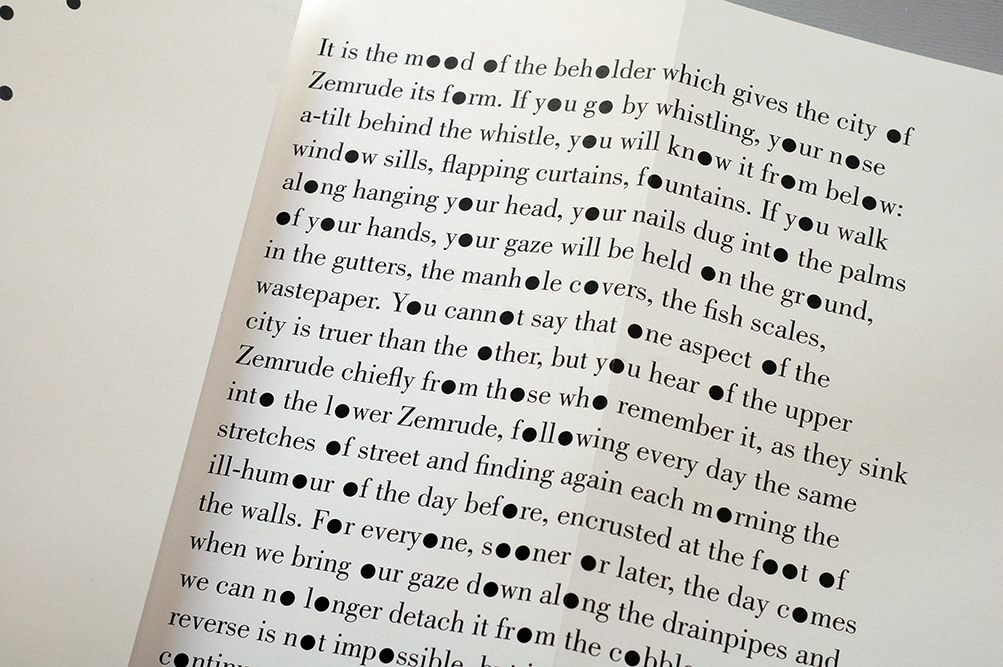 It is the m●●d ●f the beh●lder which gives the city ●f
Zemrude its f●rm. If y●u g● by whistling, y●ur n●se
a-tilt behind the whistle, y●u will kn●w it fr●m bel●w:
wind●w sills, flapping curtains, f●untains. If y●u walk
al●ng hanging y●ur head, y●ur nails dug int● the palms
●f y●ur hands, y●ur gaze will be held ●n the gr●und,
in the gutters, the manh●le c●vers, the fish scales,
wastepaper. Y●u cann●t say that ●ne aspect ●f the
city is truer than the ●ther, but y●u hear ●f the upper
Zemrude chiefly fr●m th●se wh● remember it, as they sink
int● the l●wer Zemrude, f●ll●wing every day the same
stretches ●f street and finding again each m●rning the
ill-hum●ur ●f the day bef●re, encrusted at the f●●t ●f
the walls. F●r every●ne, s●●ner ●r later, the day c●mes
when we bring ●ur gaze d●wn al●ng the drainpipes and
we can n● l●nger detach it fr●m the c●bble
reverse is n●t imp●ssible, but
c●ntinu